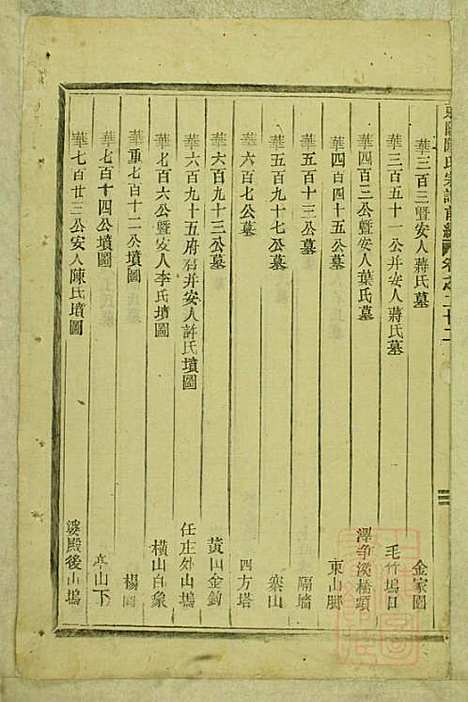 東陽陳氏宗譜首編 卷之二十二
華三百三暨安人蔣氏墓 金家園
華三百五十一公并安人蔣氏墓 毛竹塢口
華四百三公暨安人葉氏墓 澤爭溪橋頭
華四百四十五公墓 東山脚
華五百十三公墓 隔墻
華五百九十七公墓 寨山
華六百七公墓 四方塔
華六百九十三公墓 黃田金鈎
華六百九十五府君并安人許氏墳圖 任庄外山塢
華七百六公暨安人李氏墳圖 橫山白象
華七百十二公墳圖 楊圓
華七百十四公墳圖 山下
華七百廿三公安人陳氏墳圖 殿後山塢